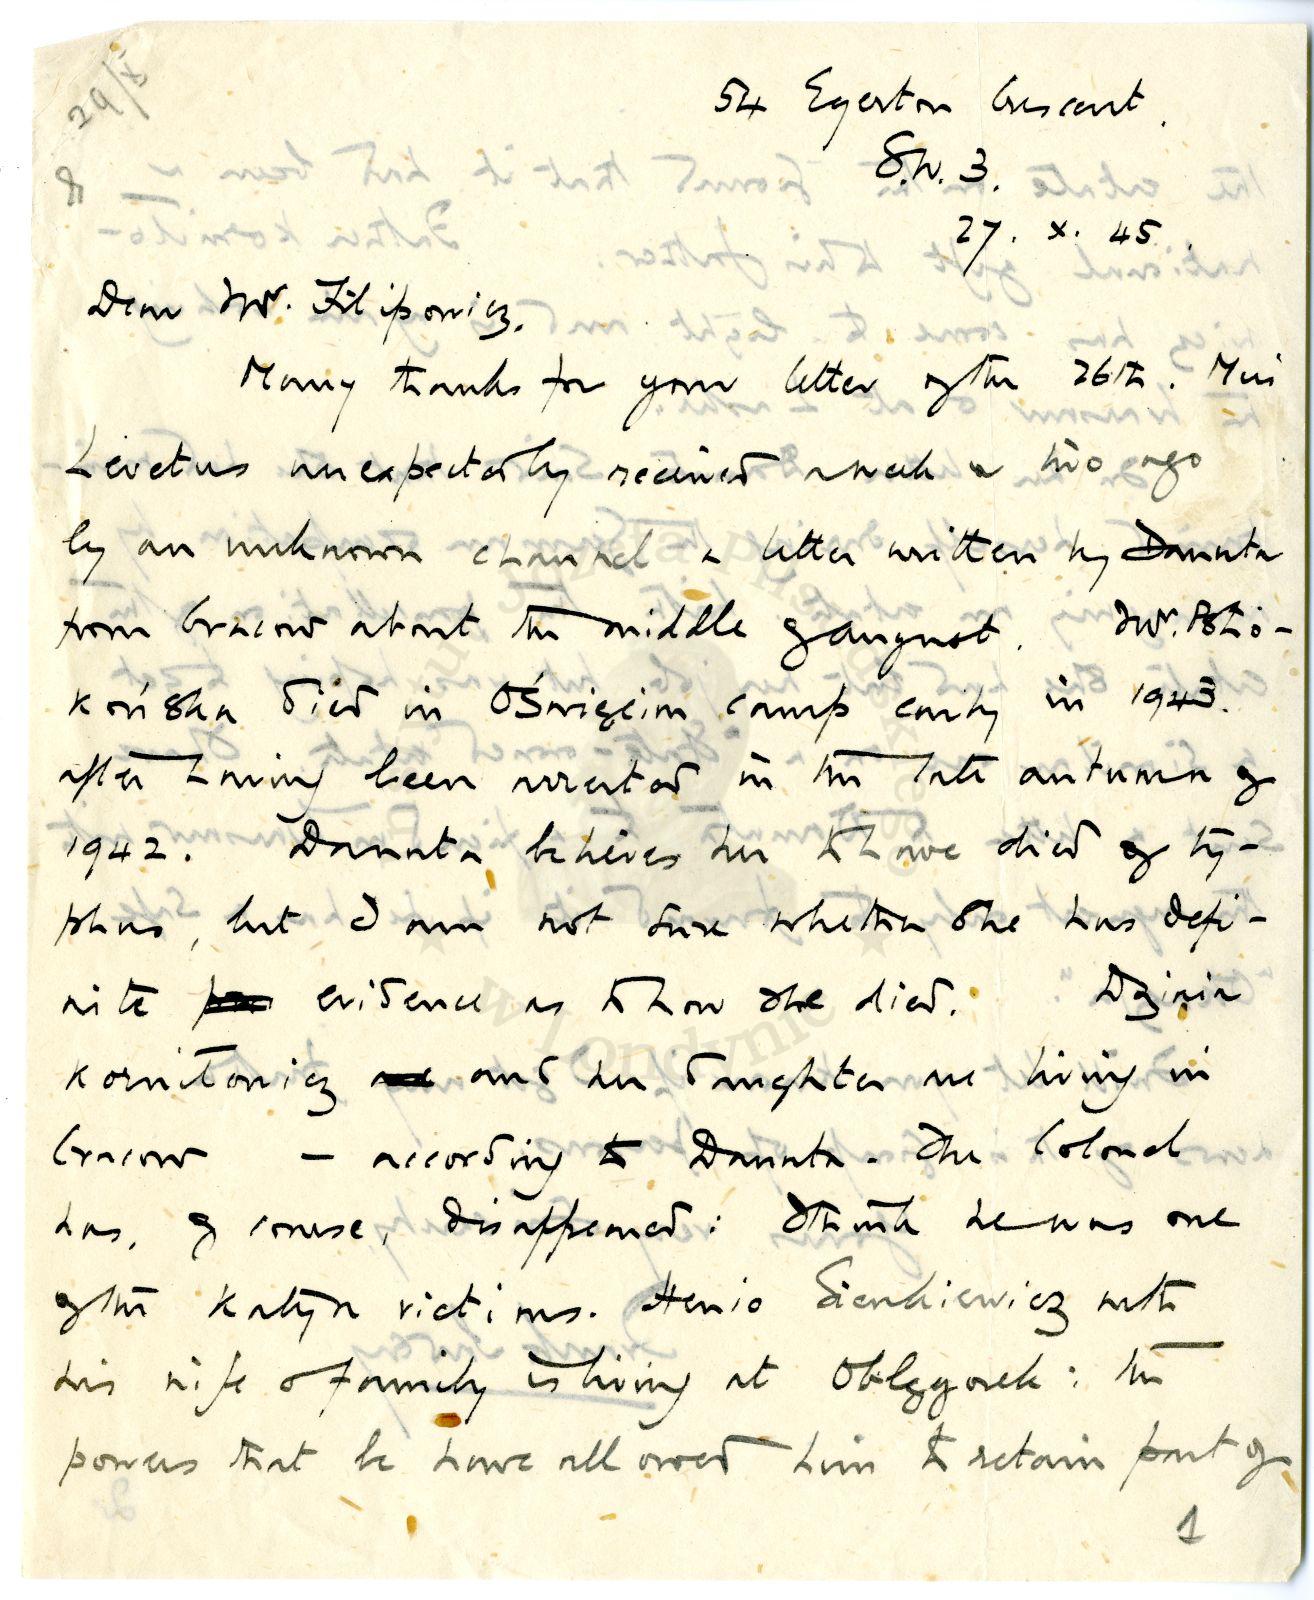 29/X
8
54 Egerton Crescent.
S.W. 3.
27. X. 45.
Dear Mr. Filipowicz,
Many thanks for your letter of the 26th. Miss
Levetus unexpectedly received a week or two ago
by an unknown channel a letter written by Danuta
from Cracow about the middle of August. Mr.
końska died in Oświęcim camp early in 1943.
after having been arrested in the late autumn of
1942. Danuta believes her to have died of ty-
phus, but I am not sure whether she has defi-
nite evidence as to how she died. Dzinia
Kornitowicz and her daughter are living in
Cracow – according to Danuta. The Colonel
has, of course, disappeared: I think he was one
of the Katyn victims. Henio Sienkiewicz with
his wife & family is living at Oblęgorek: the
powers that be have allowed him to retain part of
1